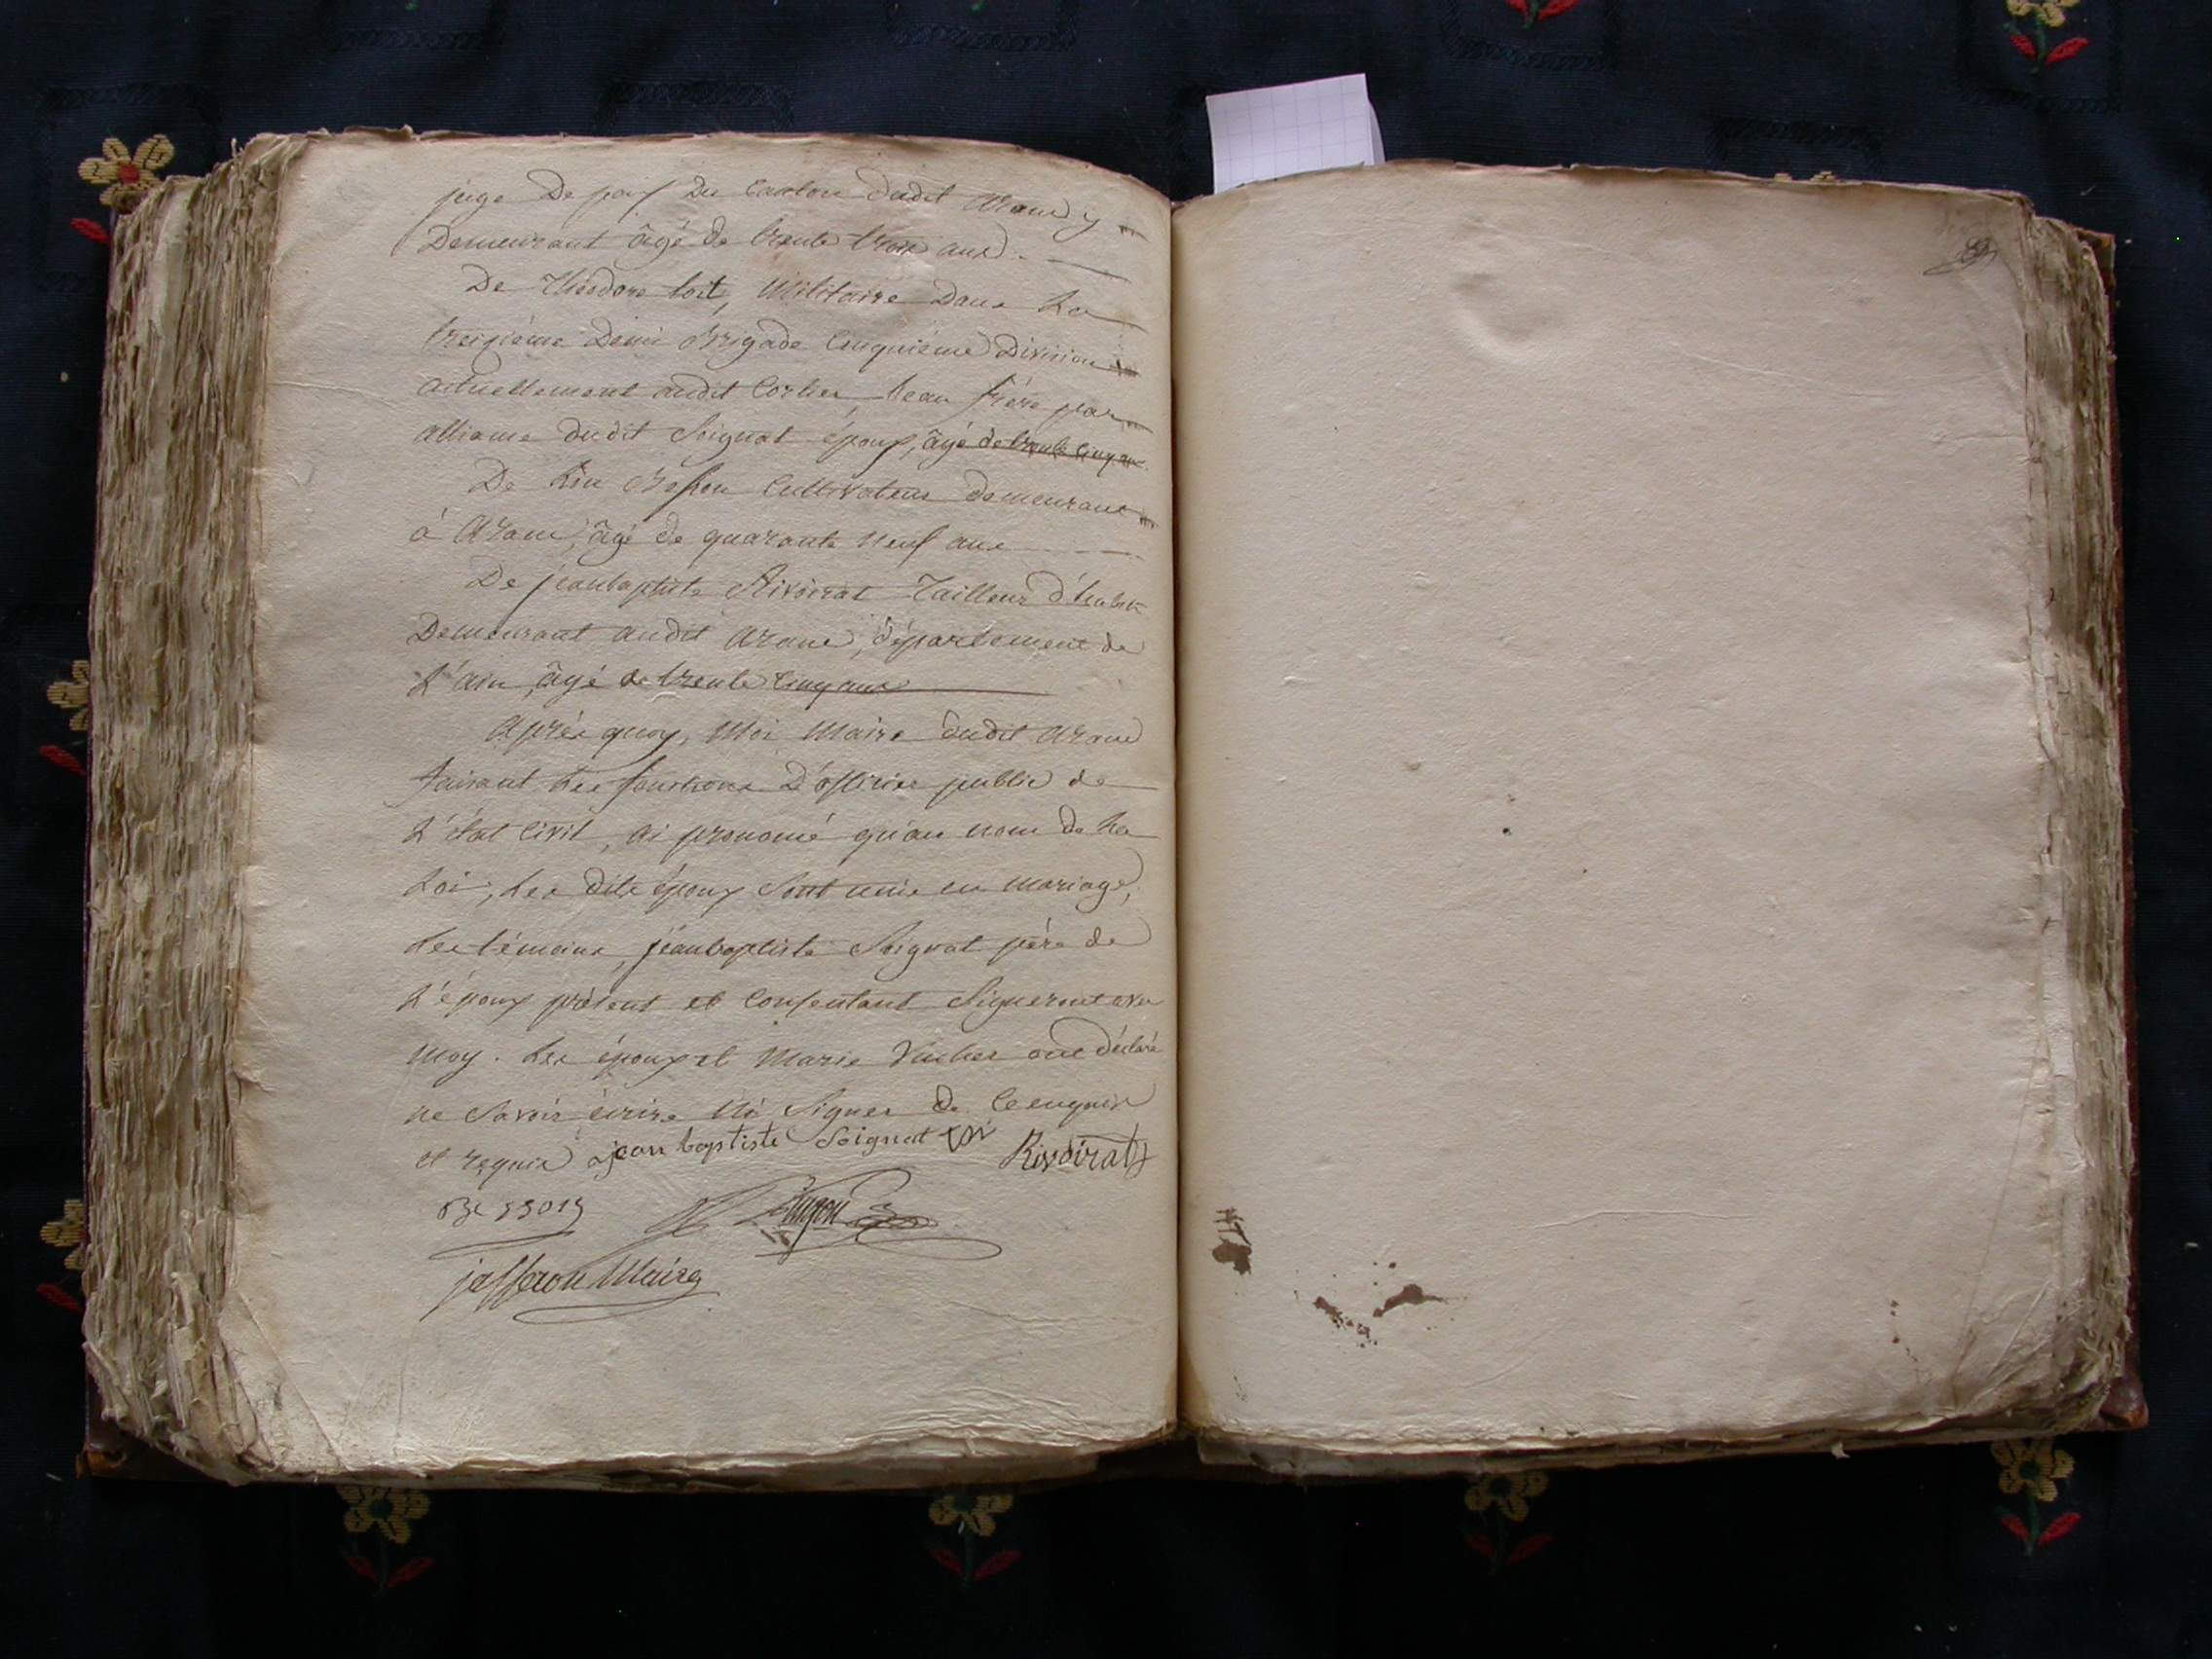 juge De paix Du Canton dudit Aranc y
Demeurant âgé de trente trois ans.
De Théodore tost, Militaire Dans La
treizième Demi Brigade Cinquième Division
actuellement audit Corlier beau frère par
alliance dudit Soignat époux, âgé de trente cinq ans
De Besson Cultivateur demeurant
à Aranc, âgé de quarante neuf ans
De jeanbaptiste Rivoirat Tailleur d'habit
Demeurant audit aranc, département de
L'ain, âgé de trente Cinq ans
après quoy, Moi Maire dudit aranc
faisant Les fonctions D'officier public de
L'état Civil, ai prononcé qu'au nom de La
Loi, Les dits époux Sont unis en mariage,
Les témoins, jeanbaptiste Soignat père de
L'époux présent et Consentant Signeront avec
moy. Les époux et Marie ont déclaré
ne Savoir écrire Ni Signer de Ce enquis
et requis jean baptiste Soignat Rivoirat
Besson
jafferon Maire